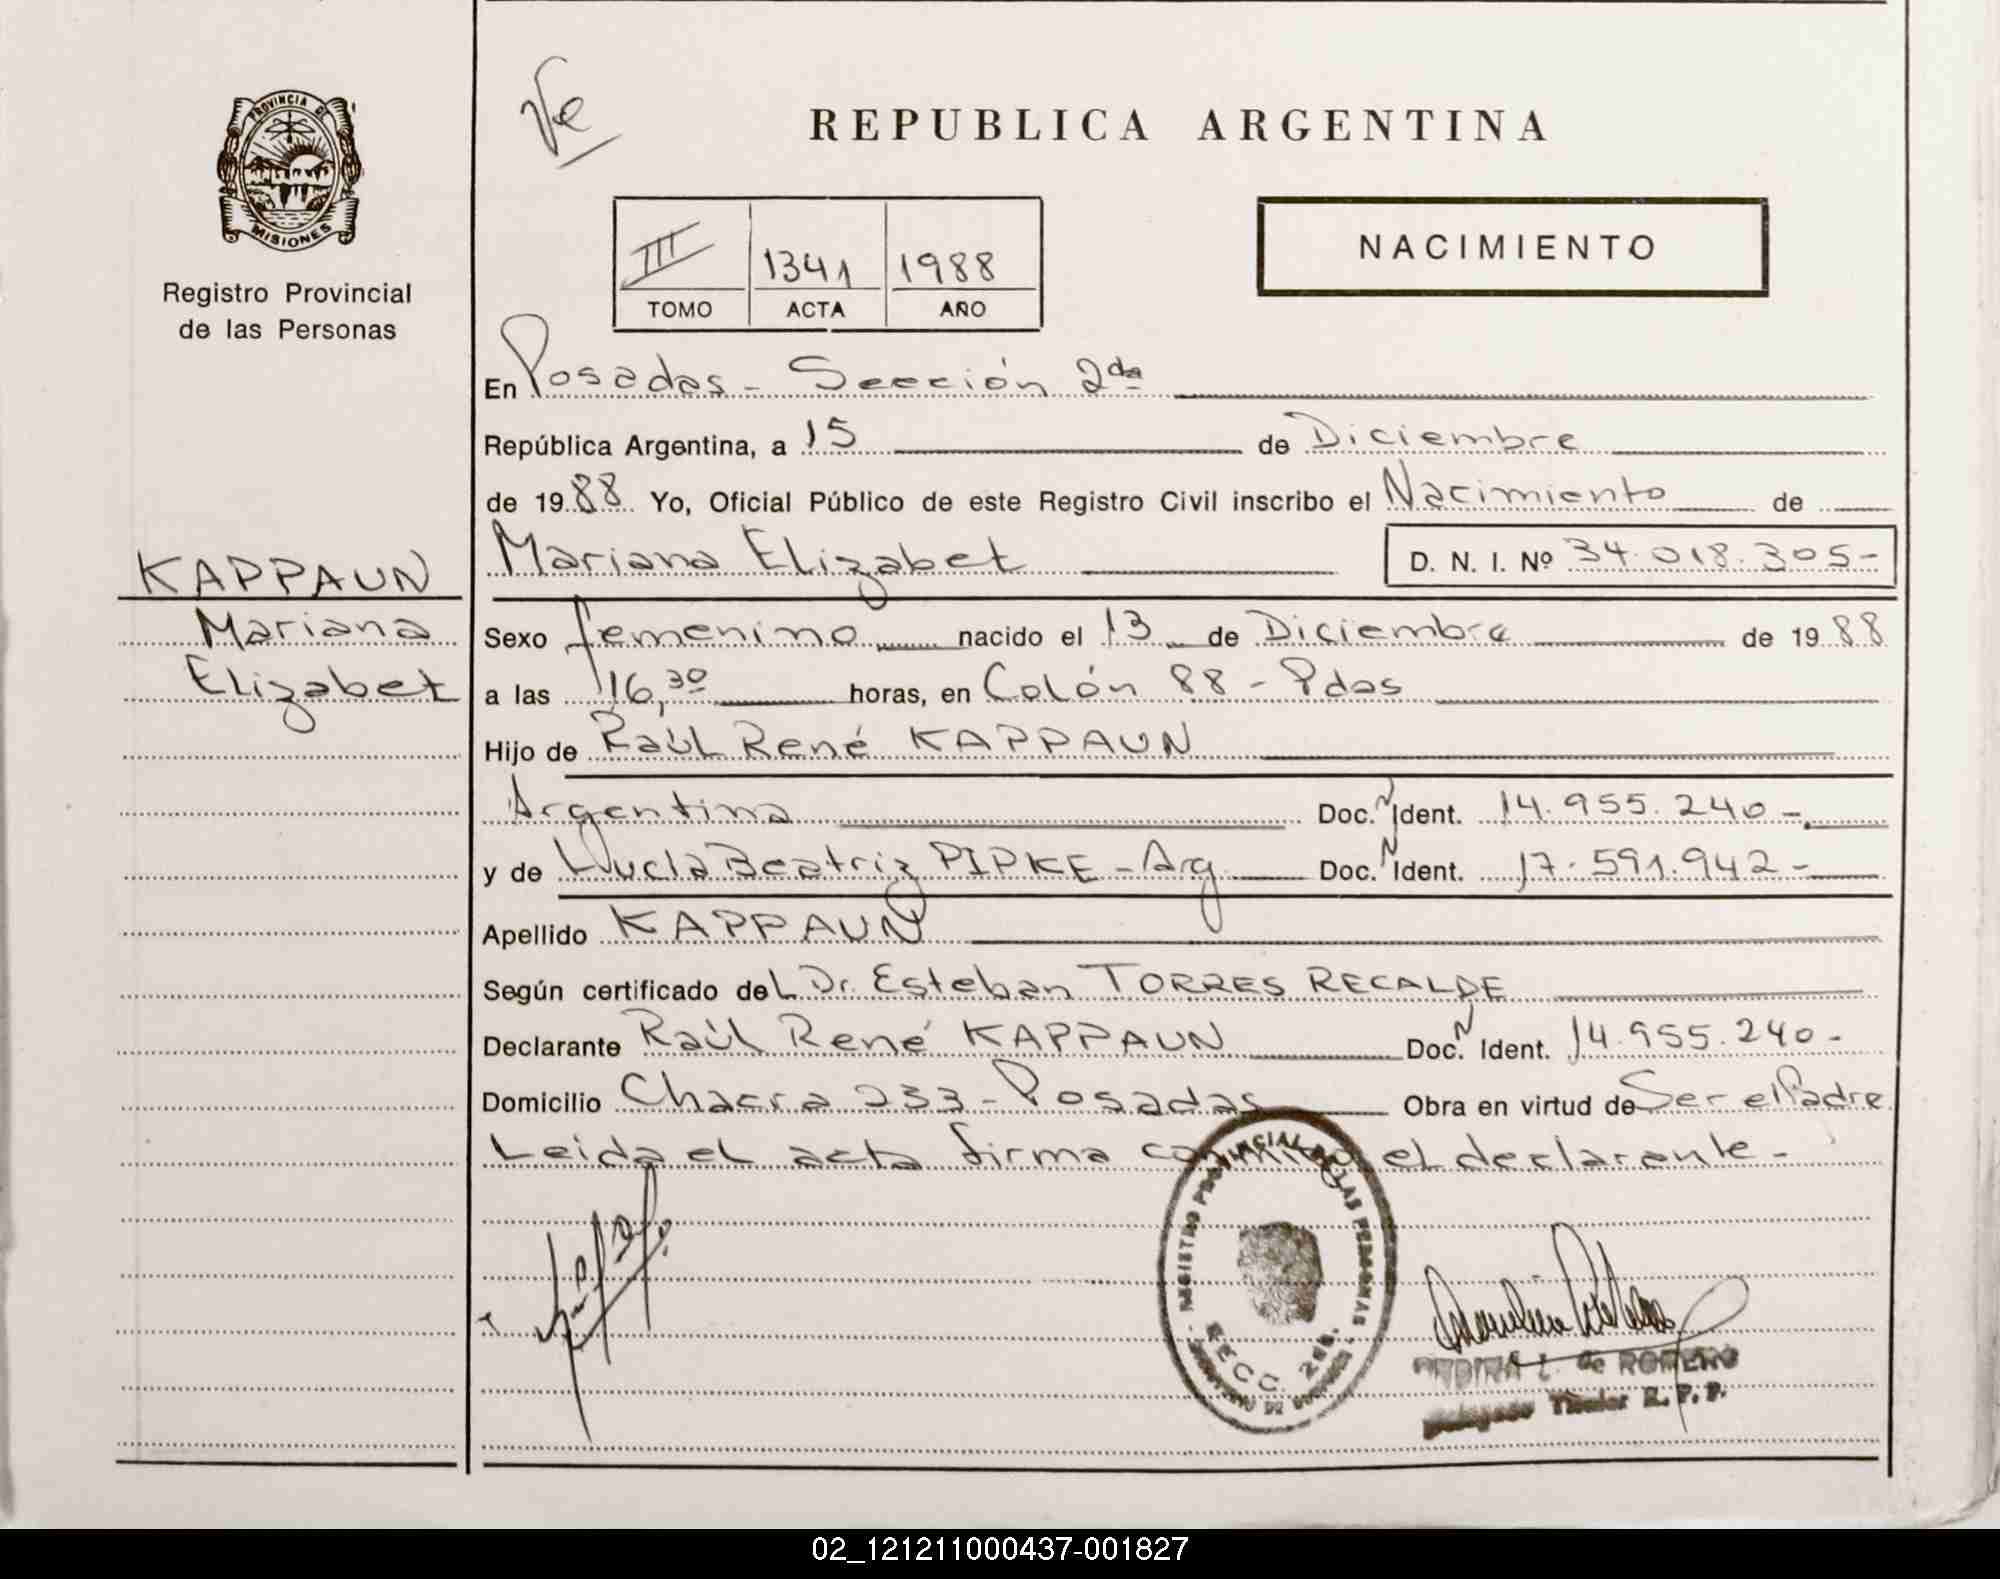 Ve
REPUBLICA ARGENTINA
PROVINCIA DE
MISIONES
Registro Provincial
de las Personas
NACIMIENTO
III 1341 1988
TOMO ACTA AÑO
En Posadas - Sección 2da
República Argentina, a 15 de Diciembre
de 1988 Yo, Oficial Público de este Registro Civil inscribo el Nacimiento de
KAPPAUN
Mariana
Elizabet
Mariana Elizabet D. N. I. Nº 34.018.305-
Sexo femenino nacido el 13 de Diciembre de 1988
a las 16,30 horas, en Colón 88 - Pdas
Hijo de Raúl René KAPPAUN
Argentina Doc. N Ident. 14.955.240-
y de Lucía Beatriz PIPKE - Arg Doc. N Ident. 17.591.942-
Apellido KAPPAUN
Según certificado del Dr. Esteban TORRES RECALDE
Declarante Raúl René KAPPAUN Doc. N Ident. 14.955.240-
Domicilio Chacra 233 - Posadas Obra en virtud de Ser el Padre
Leida el acta firma el declarante -
REGISTRO PROVINCIAL DE LAS PERSONAS
SECC. 2da.
de ROMERO
Titular R. P. P.
02_121211000437-001827